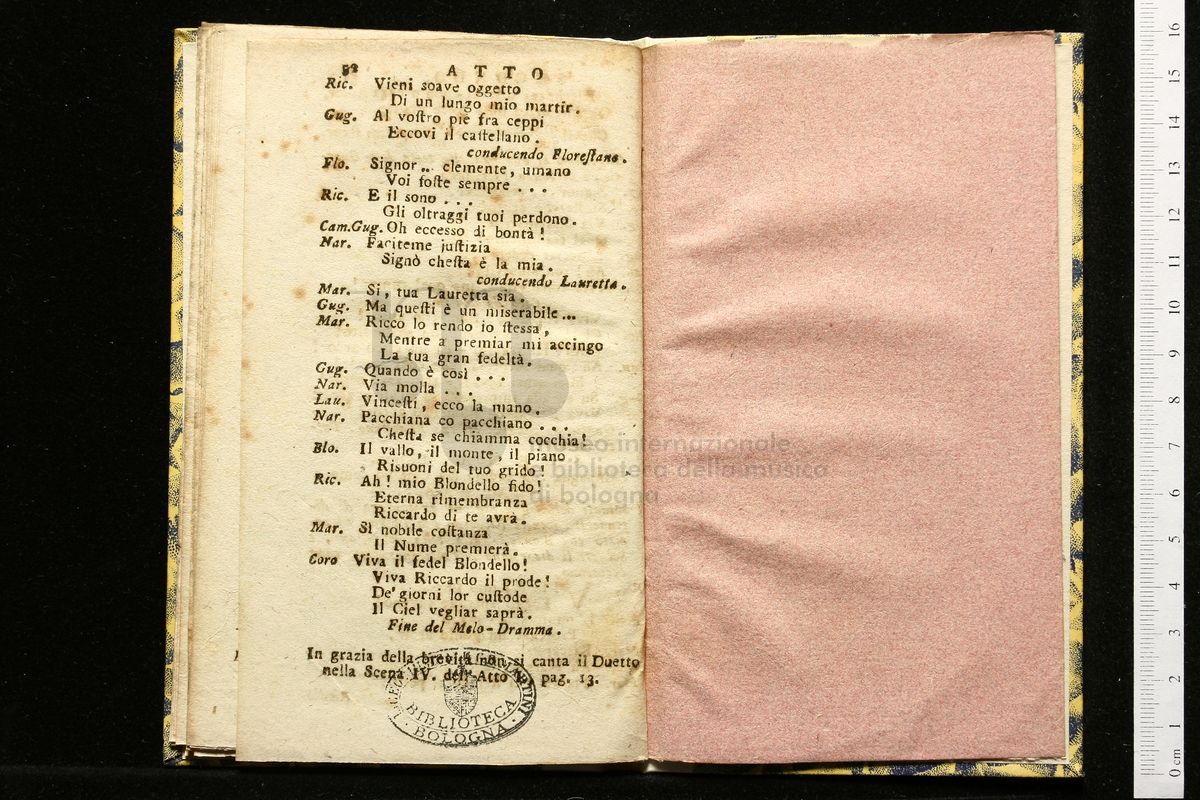 52 ATTO
Ric. Vieni soave oggetto
Di un lungo mio martir.
Gug. Al voſtro piè fra ceppi
Eccovi il caſtellano.
conducendo Floreſtano.
Flo. Signor .. clemente, umano
Voi foſte sempre . . .
Ric. E il sono . . .
Gli oltraggi tuoi perdono.
Cam.Gug. Oh eccesso di bontà !
Nar. Faciteme juſtizia
Signò cheſta è la mia.
conducendo Lauretta.
Mar. Sì, tua Lauretta sia.
Gug. Ma queſti è un miserabile ...
Mar. Ricco lo rendo io ſtessa,
Mentre a premiar mi accingo
La tua gran fedeltà.
Gug. Quando è così . . .
Nar. Via molla . . .
Lau. Vinceſti, ecco la mano.
Nar. Pacchiana co pacchiano . . .
Cheſta se chiamma cocchia!
Blo. Il vallo, il monte, il piano
Risuoni del tuo grido!
Ric. Ah! mio Blondello fido!
Eterna rimembranza
Riccardo di te avrà.
Mar. Sì nobile coſtanza
Il Nume premierà.
Coro Viva il fedel Blondello!
Viva Riccardo il prode!
De' giorni lor cuſtode
Il Ciel vegliar saprà.
Fine del Melo-Dramma.
In grazia della brevità non si canta il Duetto
nella Scena IV. dell' Atto I. pag. 13.
BIBLIOTECA
BOLOGNA
museo internazionale
e biblioteca della musica
di bologna
0 cm 1 2 3 4 5 6 7 8 9 10 11 12 13 14 15 16